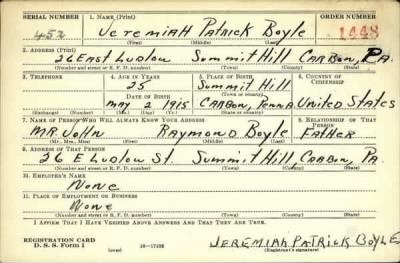 SERIAL NUMBER 1. NAME (Print) ORDER NUMBER
452 Jeremiah Patrick Boyle 1448
(First) (Middle) (Last)
2. ADDRESS (Print)
26 East Ludlow Summit Hill Carbon, Pa.
(Number and street or R. F. D. number) (Town) (County) (State)
3. TELEPHONE 4. AGE IN YEARS 5. PLACE OF BIRTH 6. COUNTRY OF CITIZENSHIP
25 Summit Hill
DATE OF BIRTH (Town or county)
May 2 1915 Carbon, Penna. United States
(Exchange) (Number) (Mo.) (Day) (Yr.) (State or country)
7. NAME OF PERSON WHO WILL ALWAYS KNOW YOUR ADDRESS 8. RELATIONSHIP OF THAT PERSON
Mr. John Raymond Boyle Father
(Mr., Mrs., Miss) (First) (Middle) (Last)
9. ADDRESS OF THAT PERSON
26 E Ludlow St. Summit Hill, Carbon, Pa.
(Number and street or R. F. D. number) (Town) (County) (State)
10. EMPLOYER'S NAME
None
11. PLACE OF EMPLOYMENT OR BUSINESS
None
(Number and street or R. F. D. number) (Town) (County) (State)
I AFFIRM THAT I HAVE VERIFIED ABOVE ANSWERS AND THAT THEY ARE TRUE.
REGISTRATION CARD
D. S. S. Form 1 (over) 16—17105 Jeremiah Patrick Boyle
(Registrant's signature)